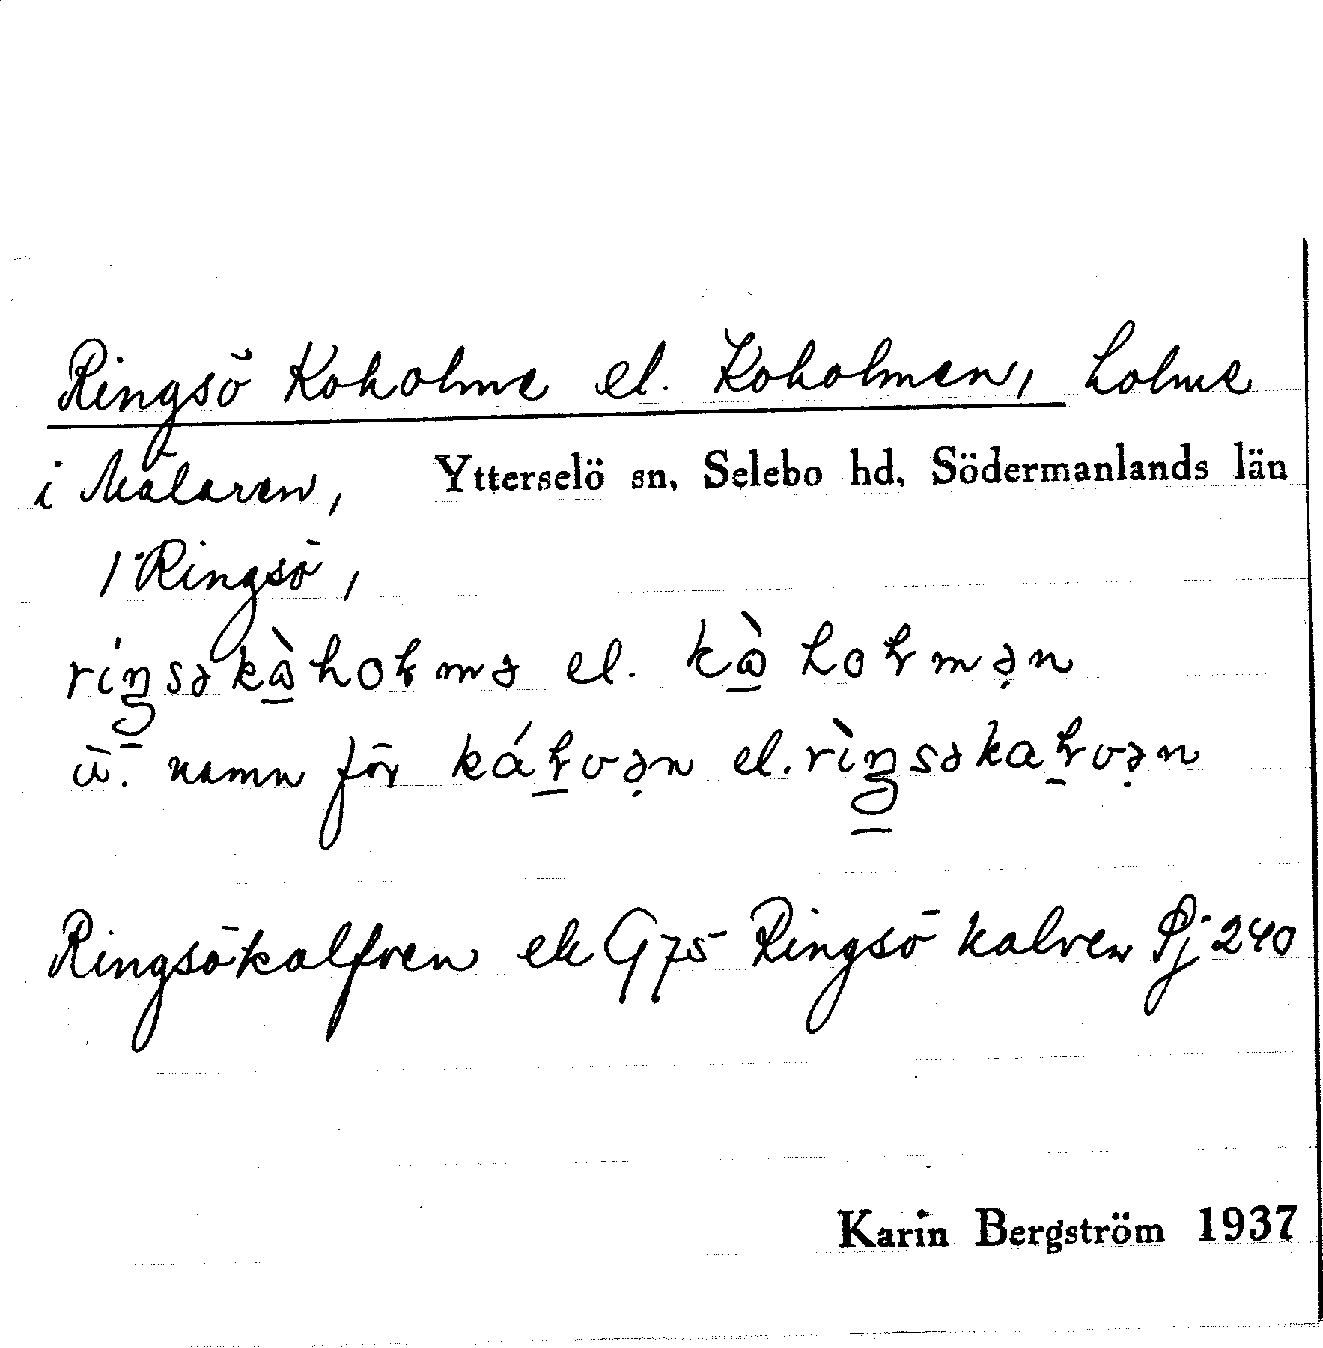 Ringsö Koholme el. Koholmen, holme
i Mälaren, Ytterselö sn, Selebo hd, Södermanlands län
/ Ringsö,
el.
ä. namn för el.
Ringsökalfven ek G 75 Ringsö kalven Pj 240
Karin Bergström 1937